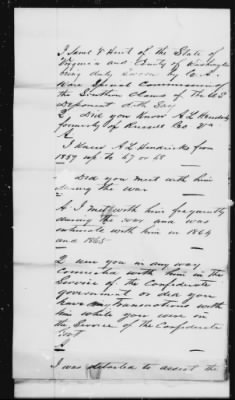 I Saml V Hurt of the State of
Virginia and County of Washington
being duly sworn by C. A.
Ware Special Commissioner of
the Southern Claims of The U.S
Deponent doth Say
Q, Did you know A L Hendricks
formerly of Russell Co Va
A
I knew A L Hendricks from
1859 up to 67 or 68
Did you meet with him
during the war
A I met with him frequently
during the war and was
intimate with him in 1864
and 1865
Q were you in any way
Connected with him in the
Service of the Confederate
government or did you
have any transactions with
him while you were in
the Service of the Confederate
Govt
A
I was detailed to assist the